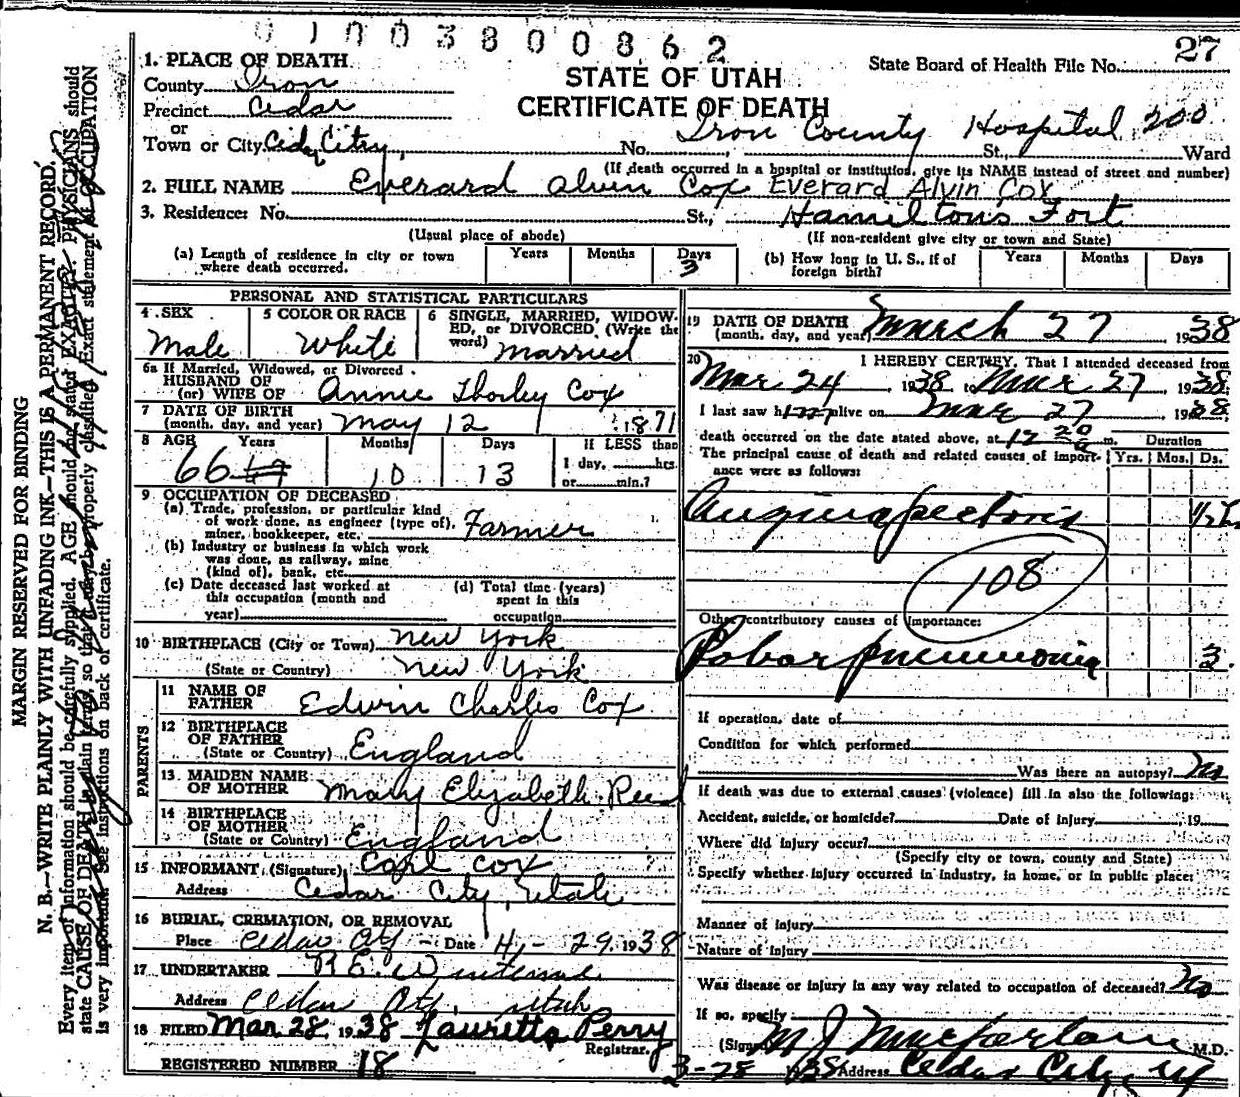 0100380086 2
27
1. PLACE OF DEATH
County Iron
Precinct Cedar
or
Town or City Cedar City,
STATE OF UTAH
CERTIFICATE OF DEATH
State Board of Health File No.
Iron County Hospital 200
No. St., Ward
(If death occurred in a hospital or institution, give its NAME instead of street and number)
2. FULL NAME Everard Alvin Cox Everard Alvin Cox
3. Residence: No. St., Hamiltons Fort
(Usual place of abode) (If non-resident give city or town and State)
(a) Length of residence in city or town where death occurred. Years Months Days 3
(b) How long in U. S., if of foreign birth? Years Months Days
PERSONAL AND STATISTICAL PARTICULARS
4 SEX Male
5 COLOR OR RACE White
6 SINGLE, MARRIED, WIDOWED, or DIVORCED (Write the word) married
6a If Married, Widowed, or Divorced
HUSBAND OF
(or) WIFE OF Annie Thorley Cox
7 DATE OF BIRTH
(month, day, and year) May 12 1871
8 AGE Years Months Days If LESS than
66 10 13 1 day, hrs.
or min.?
9 OCCUPATION OF DECEASED
(a) Trade, profession, or particular kind
of work done, as engineer (type of),
miner, bookkeeper, etc. Farmer
(b) Industry or business in which work
was done, as railway, mine
(kind of), bank, etc.
(c) Date deceased last worked at
this occupation (month and
year)
(d) Total time (years)
spent in this
occupation
10 BIRTHPLACE (City or Town) New York
(State or Country) New York
PARENTS
11 NAME OF
FATHER Edwin Charles Cox
12 BIRTHPLACE
OF FATHER
(State or Country) England
13 MAIDEN NAME
OF MOTHER Mary Elizabeth Reed
14 BIRTHPLACE
OF MOTHER
(State or Country) England
15 INFORMANT (Signature) Carl Cox
Address Cedar City, Utah
16 BURIAL, CREMATION, OR REMOVAL
Place Cedar City Date 29 1938
17 UNDERTAKER
Address Cedar City, Utah
18 FILED Mar 28 1938 Lauretta Perry
Registrar.
REGISTERED NUMBER 18
19 DATE OF DEATH
(month, day, and year) March 27 1938
20 I HEREBY CERTIFY, That I attended deceased from
Mar 24 1938 to Mar 27 1938
I last saw him alive on Mar 27, 1938
death occurred on the date stated above, at 12 20 m. Duration
The principal cause of death and related causes of importance were as follows: Yrs. Mos. Ds.
Angina pectoris
108
Other contributory causes of importance:
Lobar pneumonia 3.
If operation, date of
Condition for which performed
Was there an autopsy? No
If death was due to external causes (violence) fill in also the following:
Accident, suicide, or homicide? Date of injury 19
Where did injury occur?
(Specify city or town, county and State)
Specify whether injury occurred in industry, in home, or in public place:
Manner of injury
Nature of injury
Was disease or injury in any way related to occupation of deceased? No
If so, specify
(Signed) M J Macfarlane M.D.
3-28 1938 Address Cedar City, Ut
MARGIN RESERVED FOR BINDING
N. B.—WRITE PLAINLY WITH UNFADING INK—THIS IS A PERMANENT RECORD.
Every item of information should be carefully supplied. AGE should be stated EXACTLY. PHYSICIANS should
state CAUSE OF DEATH in plain terms, so that it may be properly classified. Exact statement of OCCUPATION
is very important. See instructions on back of certificate.